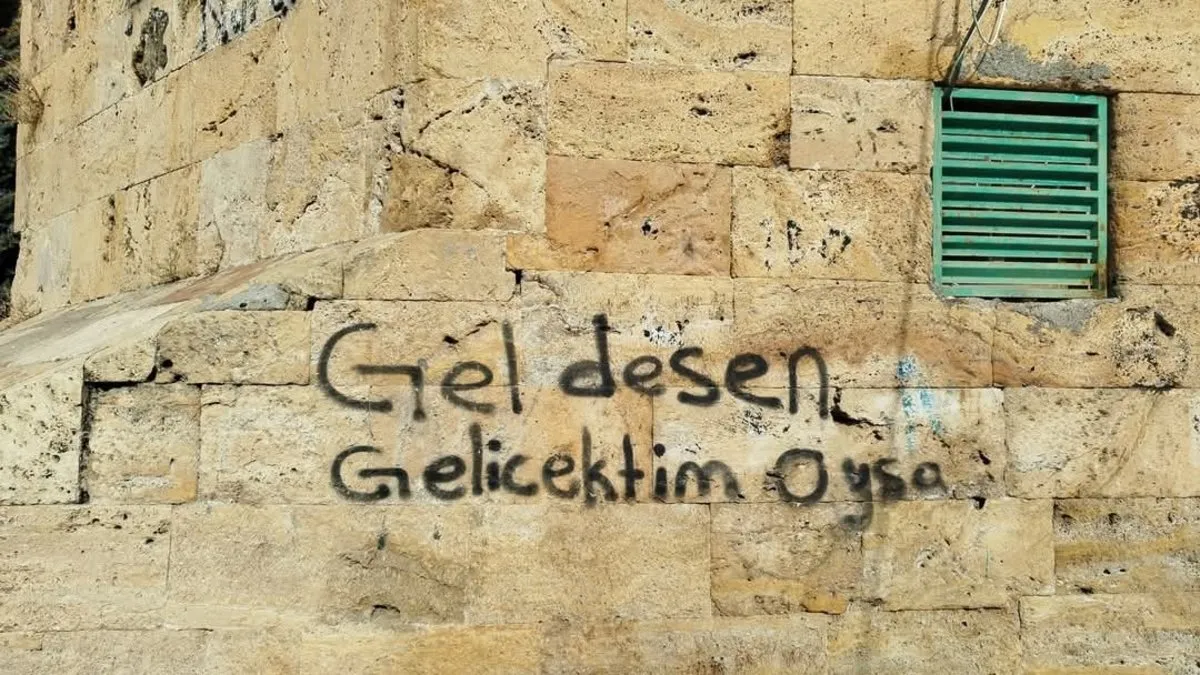 Gel desen
Gelicektim Oysa